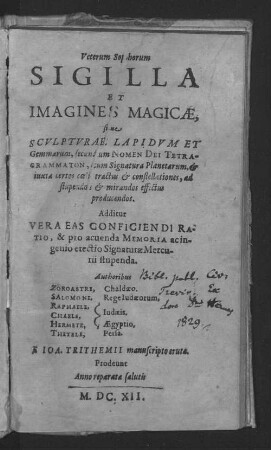 Veterum Sophorum
SIGILLA
ET
IMAGINES MAGICAE,
siue
SCVLPTVRAE LAPIDVM ET
Gemmarum, secundum NOMEN DEI TETRA-
GRAMMATON, cum Signatura Planetarum, &
iuxta certos cœli tractus & constellationes, ad
stupendos & mirandos effectus
producendos.
Additur
VERA EAS CONFICIENDI RA-
TIO, & pro acuenda MEMORIA ac in-
genio erecto Signaturæ Mercu-
rii stupenda.
Authoribus
ZOROASTRE, Chaldæo.
SALOMONE, Rege Iudæorum,
RAPHAELE,
CHAELE, Iudæis.
HERMETE, Ægyptio,
THETELE, Persa.
Bibl. publ. Civ.
Trevir. Ex
1829
E IOA. TRITHEMII manuscripto eruta.
Prodeunt
Anno reparatæ salutis
M. DC. XII.